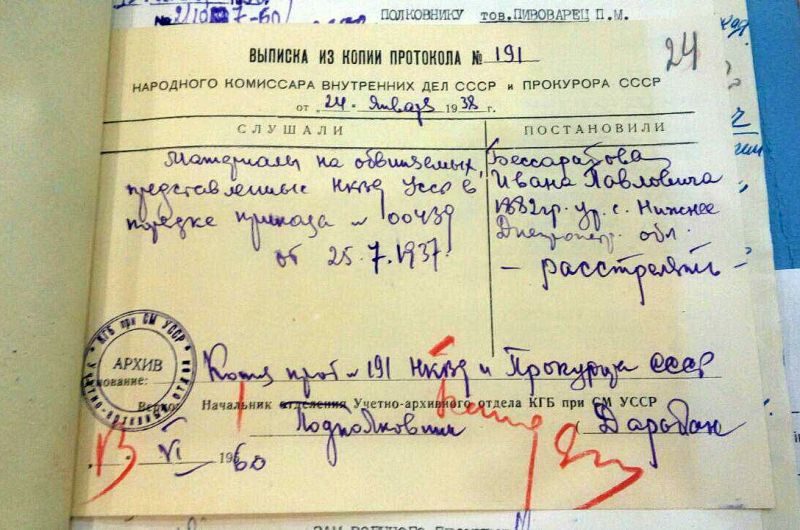 ПОЛКОВНИКУ тов.ПИВОВАРЕЦ П.М.
ВЫПИСКА ИЗ КОПИИ ПРОТОКОЛА № 191
24
НАРОДНОГО КОМИССАРА ВНУТРЕННИХ ДЕЛ СССР и ПРОКУРОРА СССР
от „24„ Января 1938 г.
СЛУШАЛИ
ПОСТАНОВИЛИ
Материалы на обвиняемых,
представленные НКВД УССР в
порядке приказа № 00439
от 25.7.1937.
Бессарабова
Ивана Павловича
1882 гр. ур. с. Нижнее
Днепропетр. обл.
— расстрелять —
КГБ при СМ УССР
АРХИВ
Учетно-архивный отдел
нование: Копия прот № 191 НКВД и Прокурора СССР
Верно: Начальник отделения Учетно-архивного отдела КГБ при СМ УССР
Подполковник ( Дарабан
13 VI 1960